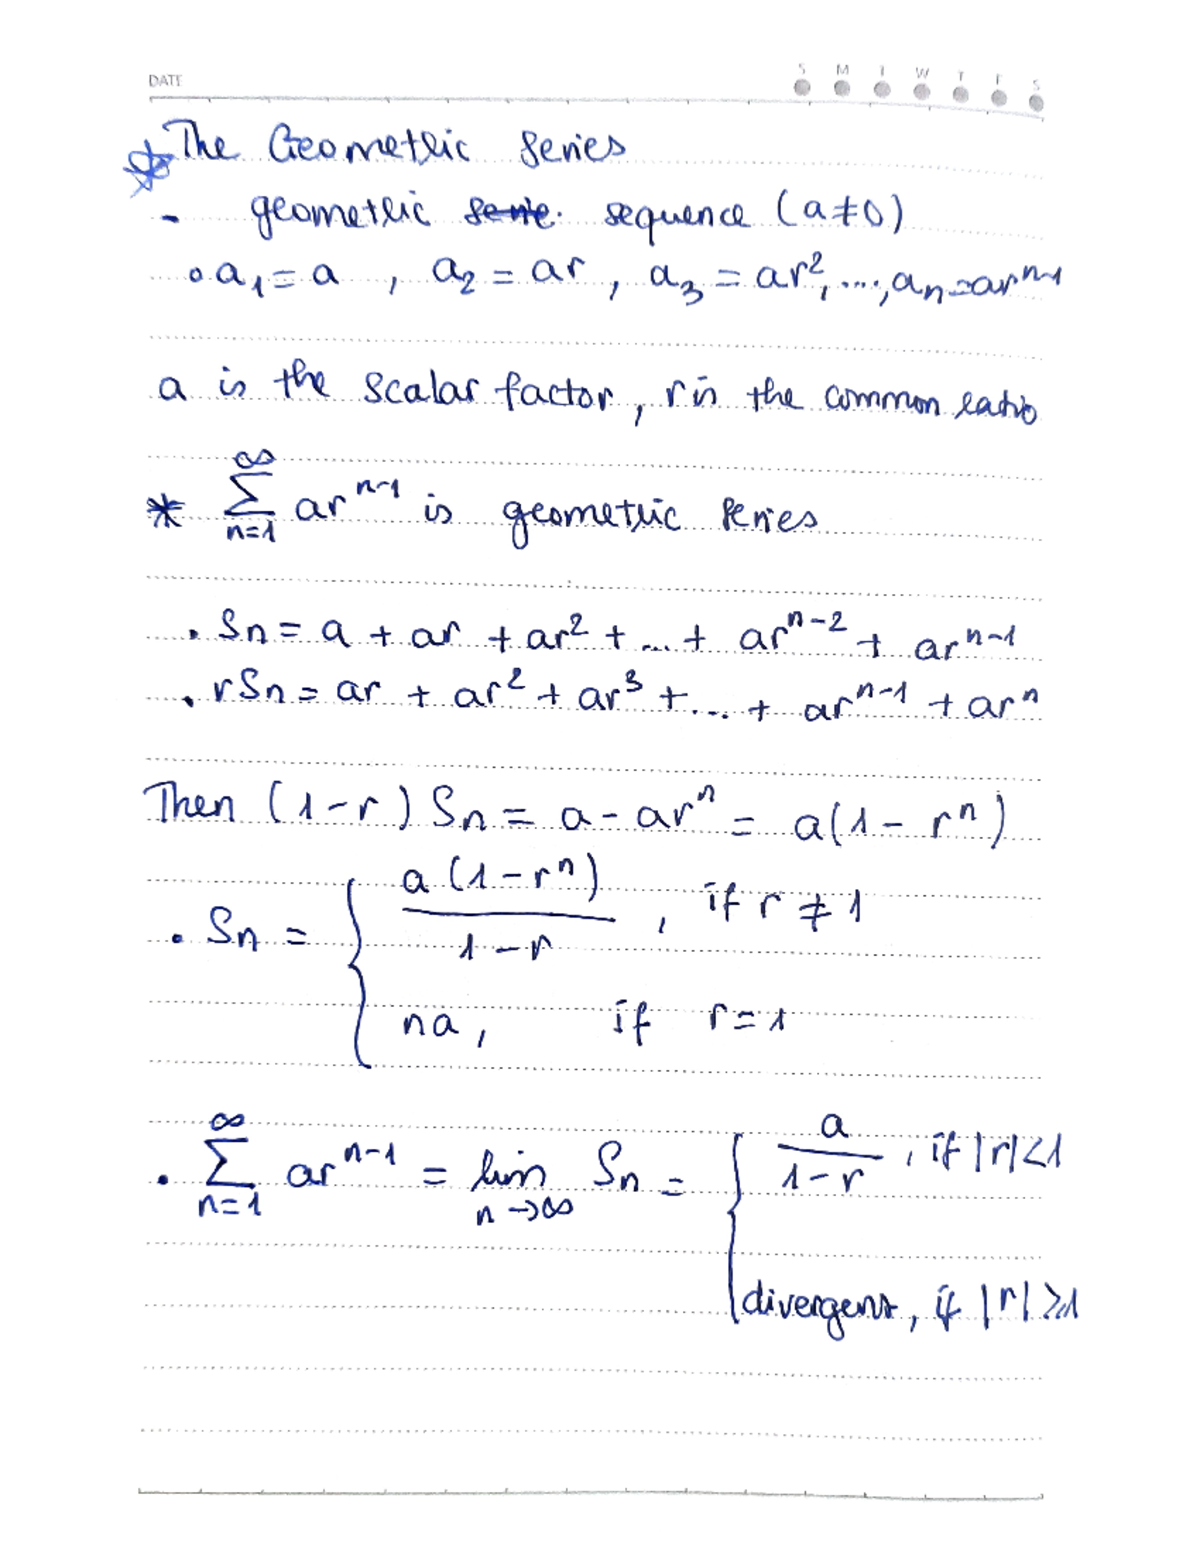 DATE S M T W T F S
☆ The Geometric Series
- geometric serie. sequence (a≠0)
∘ a₁ = a , a₂ = ar , a₃ = ar², ..., aₙ = arⁿ⁻¹
a is the scalar factor, r is the common ratio
* ∑_{n=1}^{∞} arⁿ⁻¹ is geometric series
. Sn = a + ar + ar² + ... + arⁿ⁻² + arⁿ⁻¹
. rSn = ar + ar² + ar³ + ... + arⁿ⁻¹ + arⁿ
Then (1-r) Sn = a - arⁿ = a(1 - rⁿ)
. Sn = { a(1-rⁿ) / 1-r , if r ≠ 1
na, if r = 1
. ∑_{n=1}^{∞} arⁿ⁻¹ = lim_{n→∞} Sn = { a / 1-r , if |r|<1
divergent, if |r| ⩾ 1